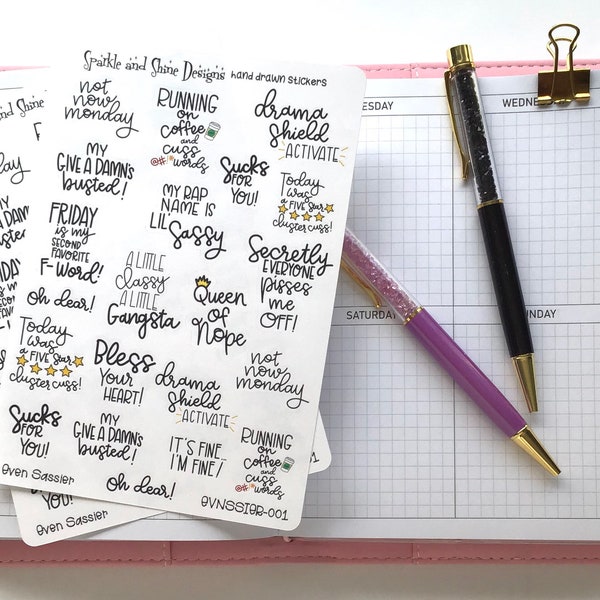 Sparkle and Shine Designs hand drawn stickers
not
now
monday
RUNNING
on
coffee
and
cuss
@#!* words
drama
shield
ACTIVATE
MY
GIVE A DAMN'S
busted!
SUCKS
FOR
YOU!
MY RAP
NAME IS
LIL
Sassy
Today
was
a FIVE Star
cluster cuss!
FRIDAY
is my
SECOND
FAVORITE
F-WORD!
A LITTLE
classy
A LITTLE
Gangsta
Queen
OF
Nope
Secretly
EVERYONE
Pisses
me
OFF!
oh dear!
Today
was
a FIVE Star
cluster cuss!
Bless
YOUR
HEART!
drama
shield
ACTIVATE
not
now
monday
SUCKS
FOR
YOU!
MY
GIVE A DAMN'S
busted!
IT'S FINE...
I'M FINE!
RUNNING
on
coffee
and
cuss
@#!* words
oh dear!
Even Sassier
EVNSSIER-001
Even Sassier
YOU!
Shine Designs
TUESDAY
WEDNE
SATURDAY
SUNDAY